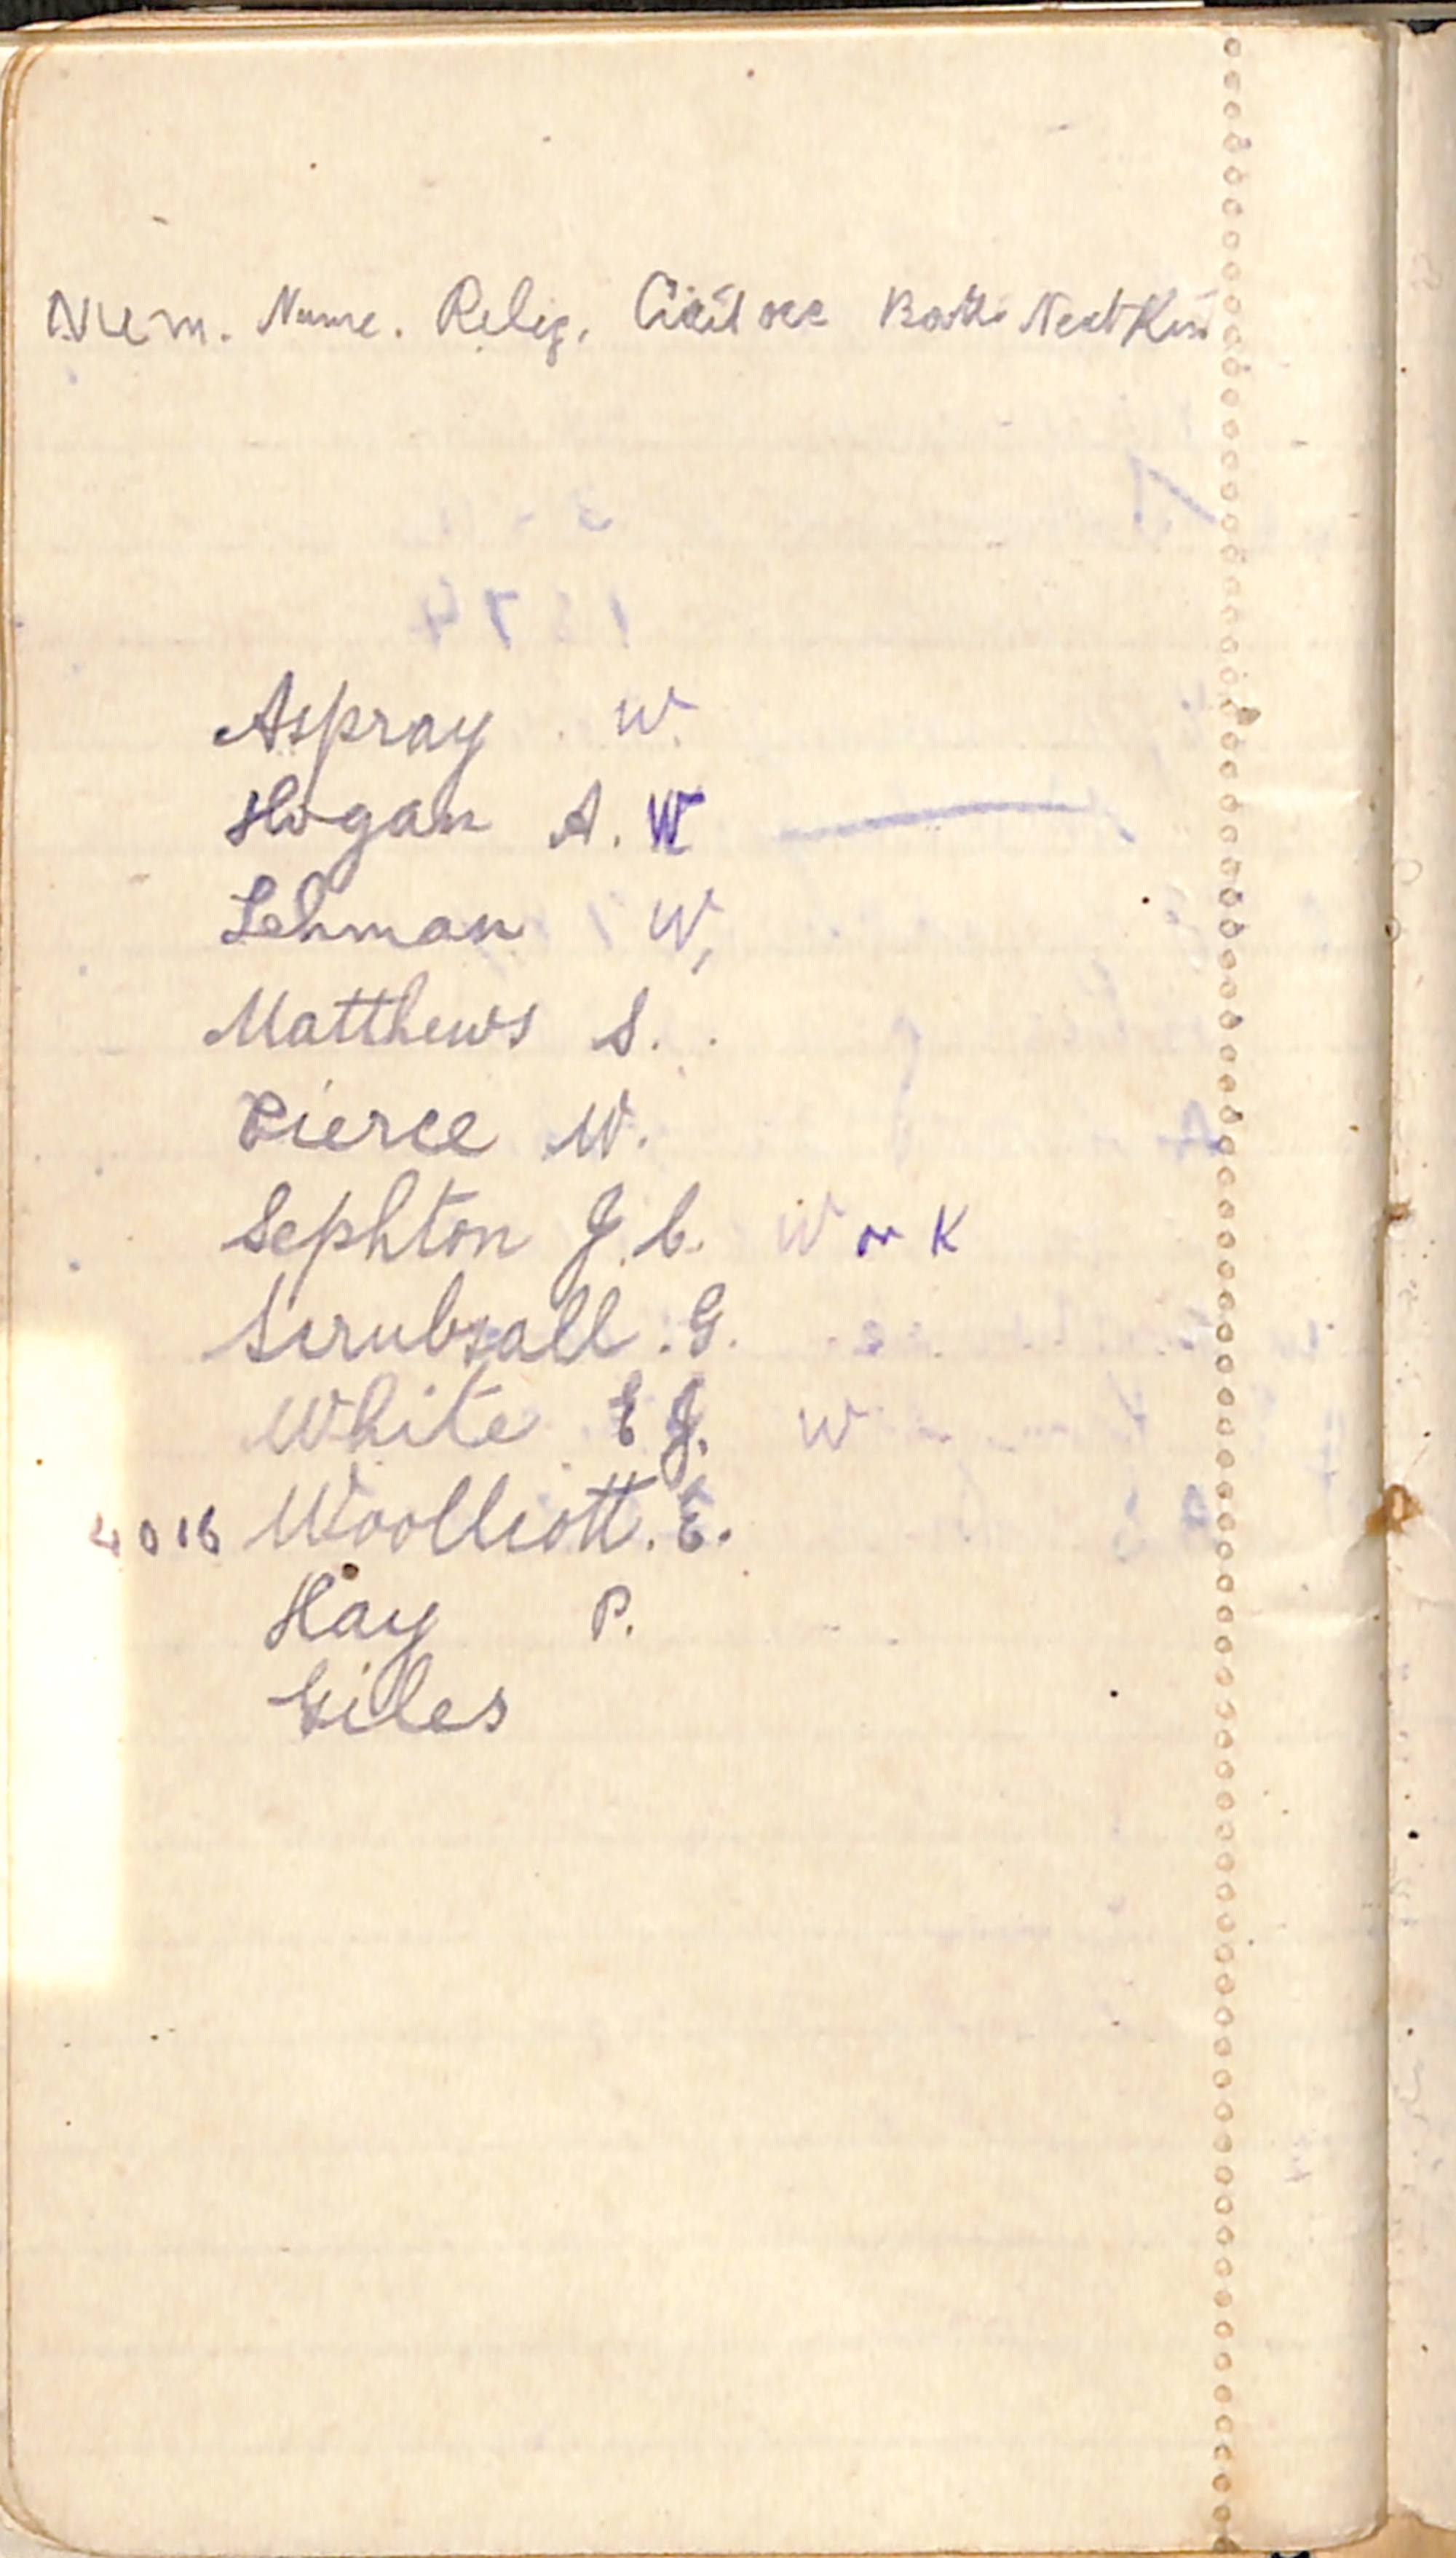 Num. Name. Relig. Civil occ Batt: Next Kin
Aspray W.
Hogan A. W
Lehman W,
Matthews S.
Pierce W.
Sephton J. C. W or K
Scrubsall . G.
White E J. W
4016 Woollcott. E.
Hay P.
Giles